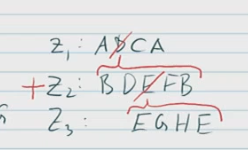 Z₁: ABCA
+Z₂: BDEFB
Z₃: EGHE